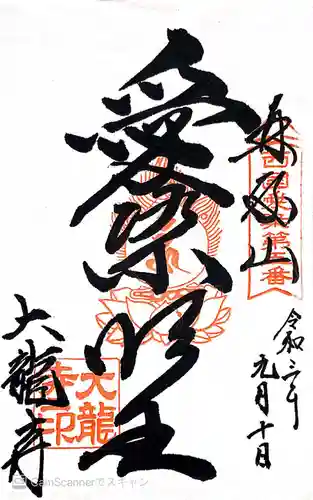 愛染明王
令和二年
元月十日
大龍寺
大龍
寺印
CamScannerでスキャン